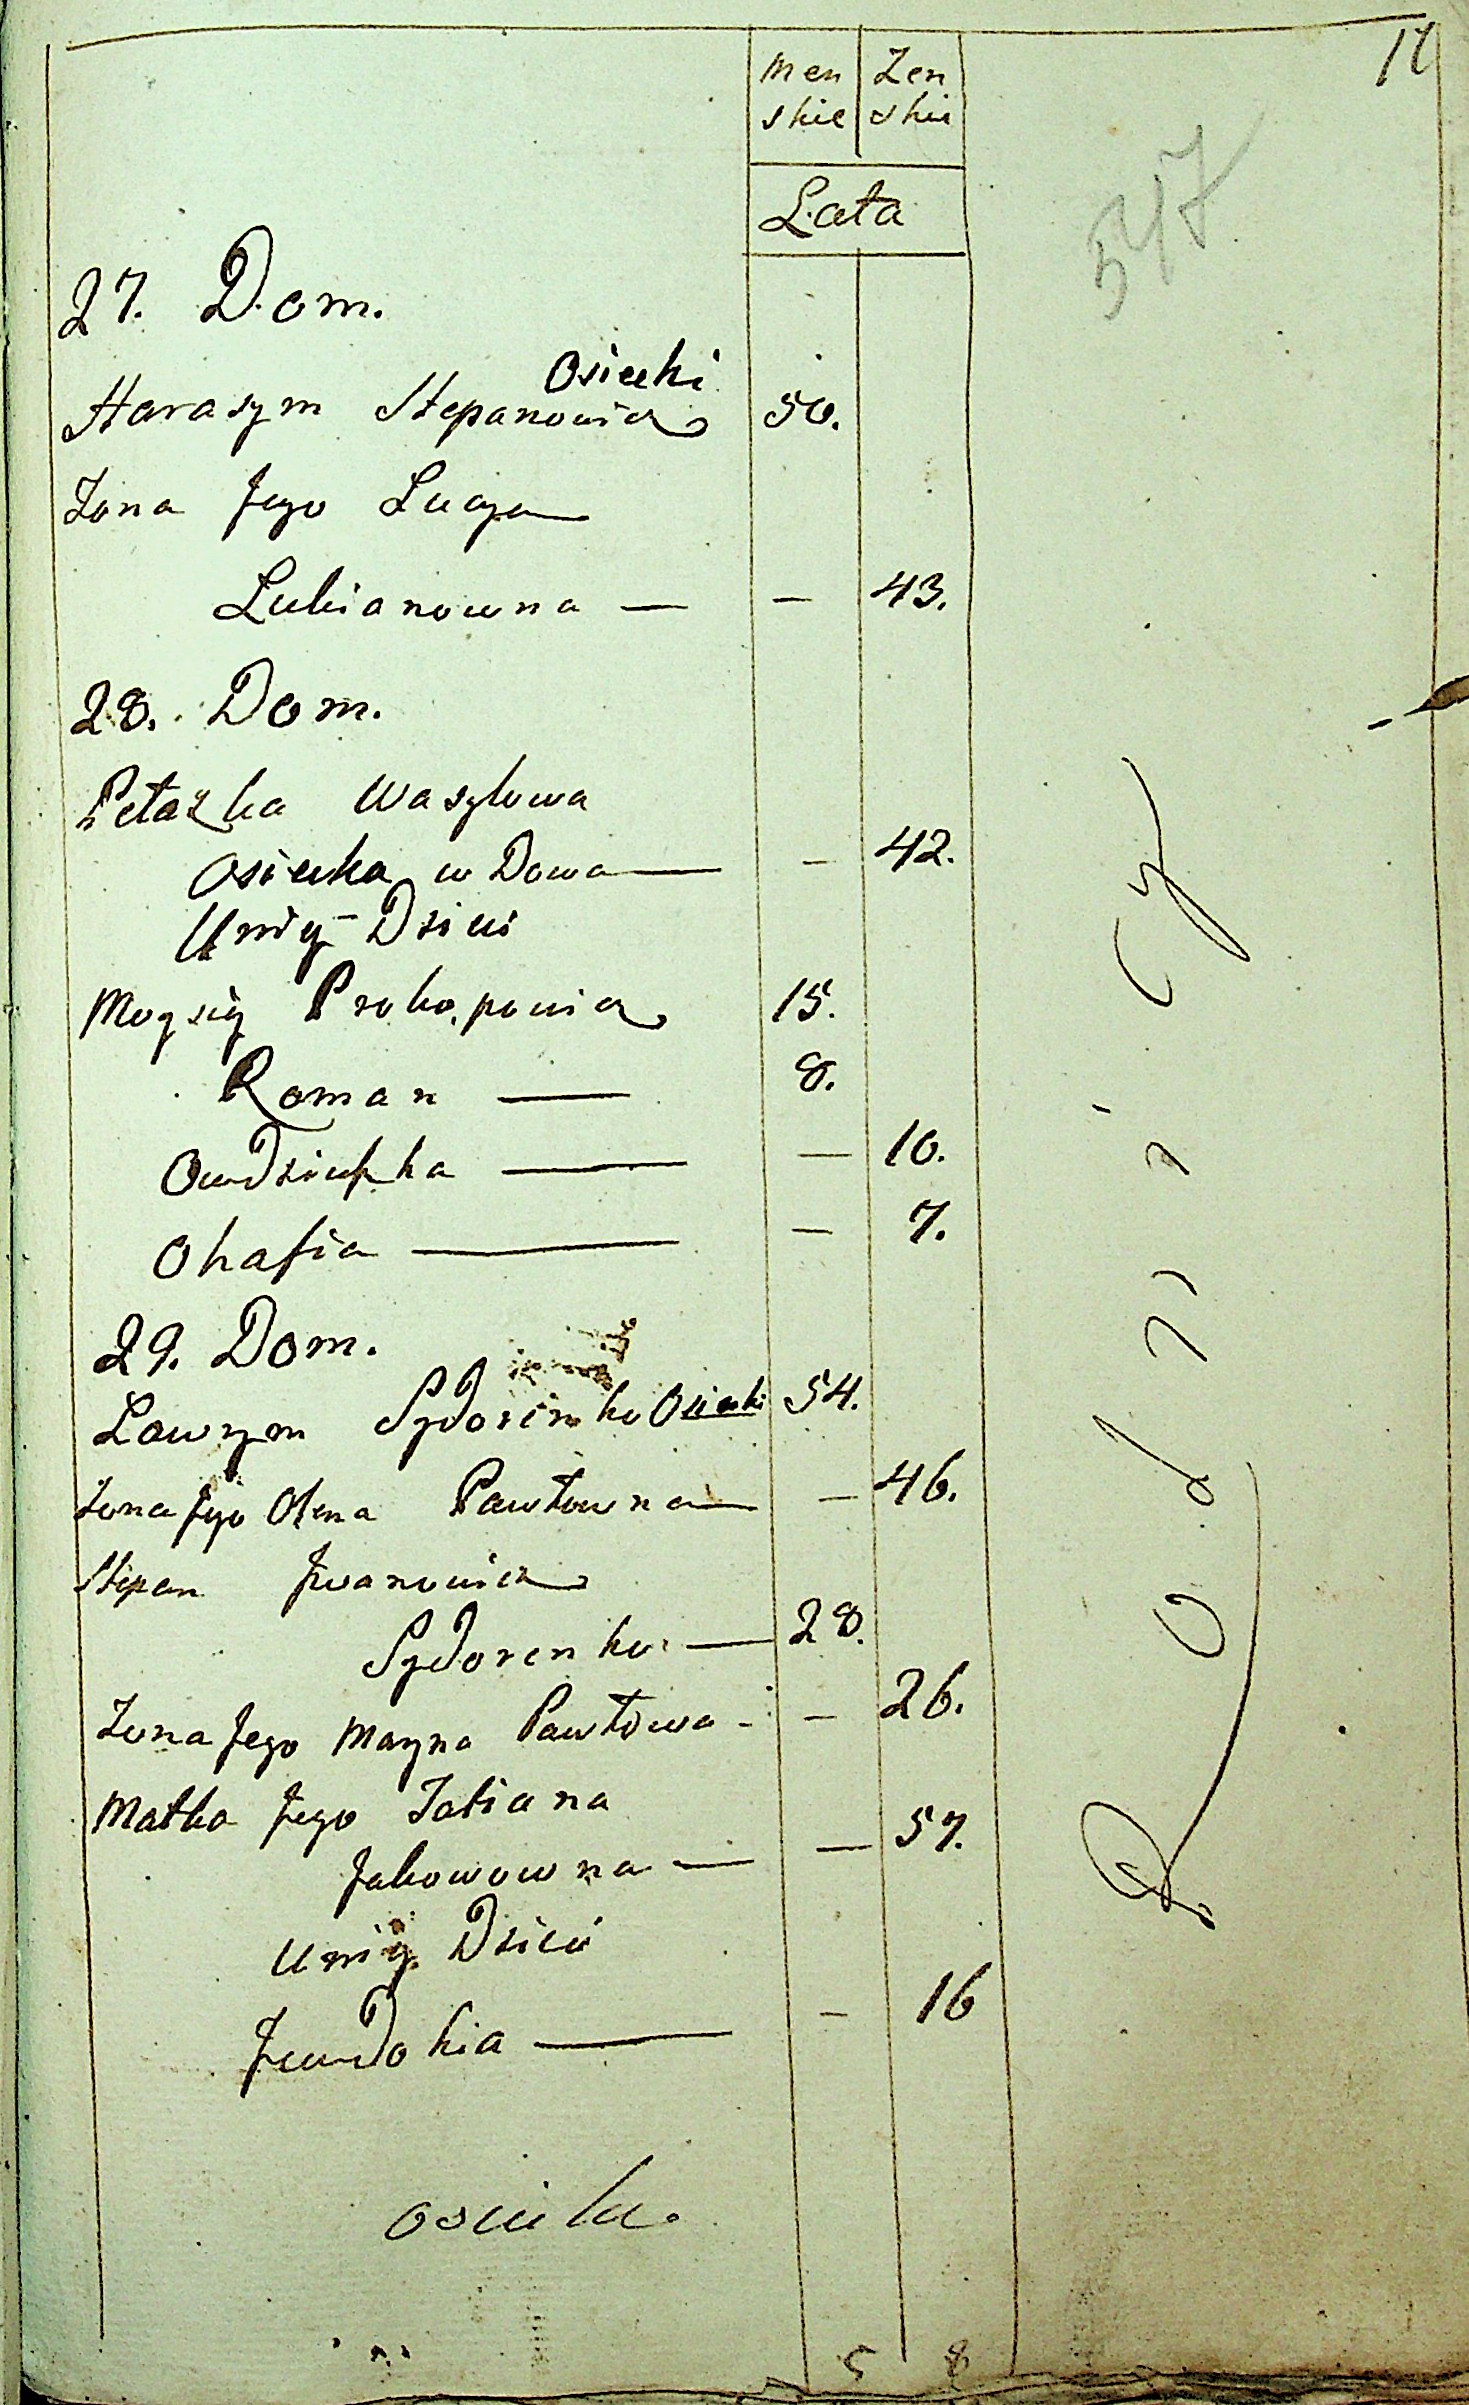 11
Men Zen
skie skie
Lata
547
27. Dom.
Osiecki
Harasym Stepanowicz 50.
Zona Jego Lucya
Lukianowna — — 43.
28. Dom.
Petaszka Wasylowa
Osiecka wdowa — — 42.
U niey Dzieci
Moysiy Prokopowicz 15.
Roman — 8.
Owdziuszka — — 10.
Ohafia — — 7.
29. Dom.
Lawrym Sydorenko Osiecki 54.
Zona Jego Olena Pawłowna — — 46.
Stepan Jwanowicz
Sydorenko — 28.
Zona Jego Maryna Pawłowa - — 26.
Matka Jego Tatiana
Jakowowna — — 57.
U niey Dzieci
Jewdokia — — 16
5 8